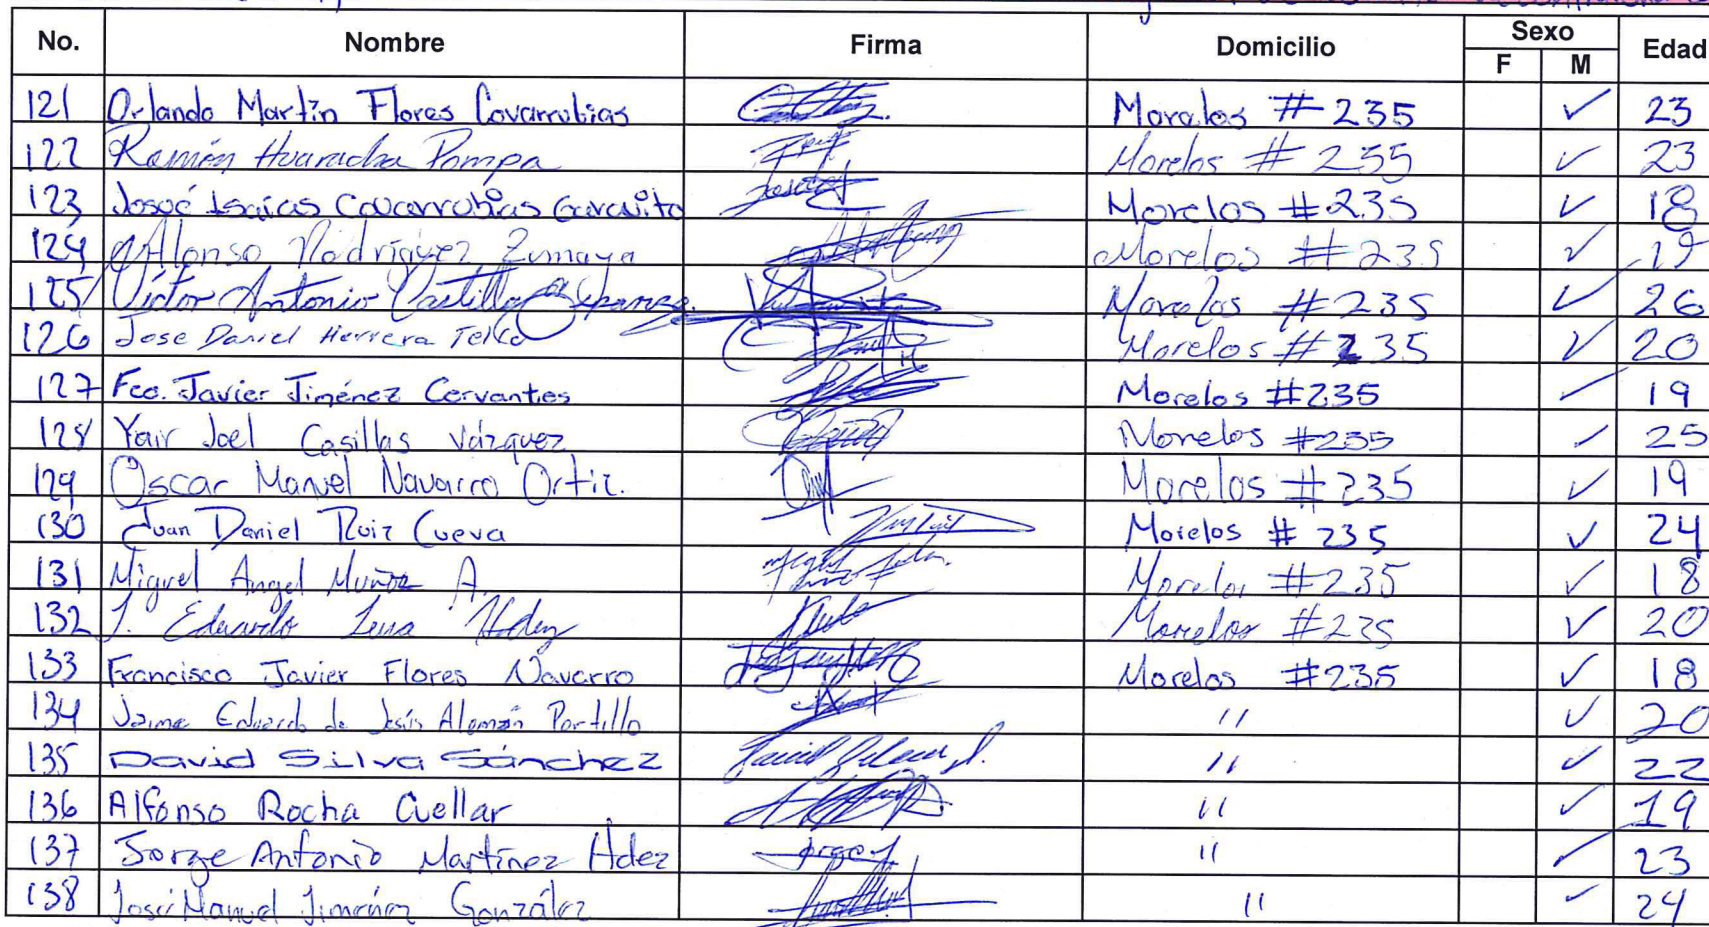 No. Nombre Firma Domicilio Sexo F M Edad
121 Orlando Martín Flores Covarrubias Morelos # 235 ✓ 23
122 Ramón Huaracha Pompa Morelos # 235 ✓ 23
123 Josué Isaías Covarrubias Garavito Morelos #235 ✓ 18
124 Alonso Rodríguez Zumaya Morelos #235 ✓ 19
125 Víctor Antonio Castillo Morelos #235 ✓ 26
126 Jose Daniel Herrera Morelos # 235 ✓ 20
127 Fco. Javier Jiménez Cervantes Morelos #235 ✓ 19
128 Yair Joel Casillas Vázquez Morelos #235 ✓ 25
129 Oscar Manuel Navarro Ortiz. Morelos #235 ✓ 19
130 Juan Daniel Ruiz Cueva Morelos # 235 ✓ 24
131 Miguel Angel Muñoz A. Morelos #235 ✓ 18
132 J. Eduardo Luna Hdez Morelos #235 ✓ 20
133 Francisco Javier Flores Navarro Morelos #235 ✓ 18
134 Jaime Eduardo de Jesús Alemán Portillo " ✓ 20
135 David Silva Sánchez David Silva S. " ✓ 22
136 Alfonso Rocha Cuellar " ✓ 19
137 Jorge Antonio Martínez Hdez Jorge " ✓ 23
138 José Manuel Jiménez González " ✓ 24